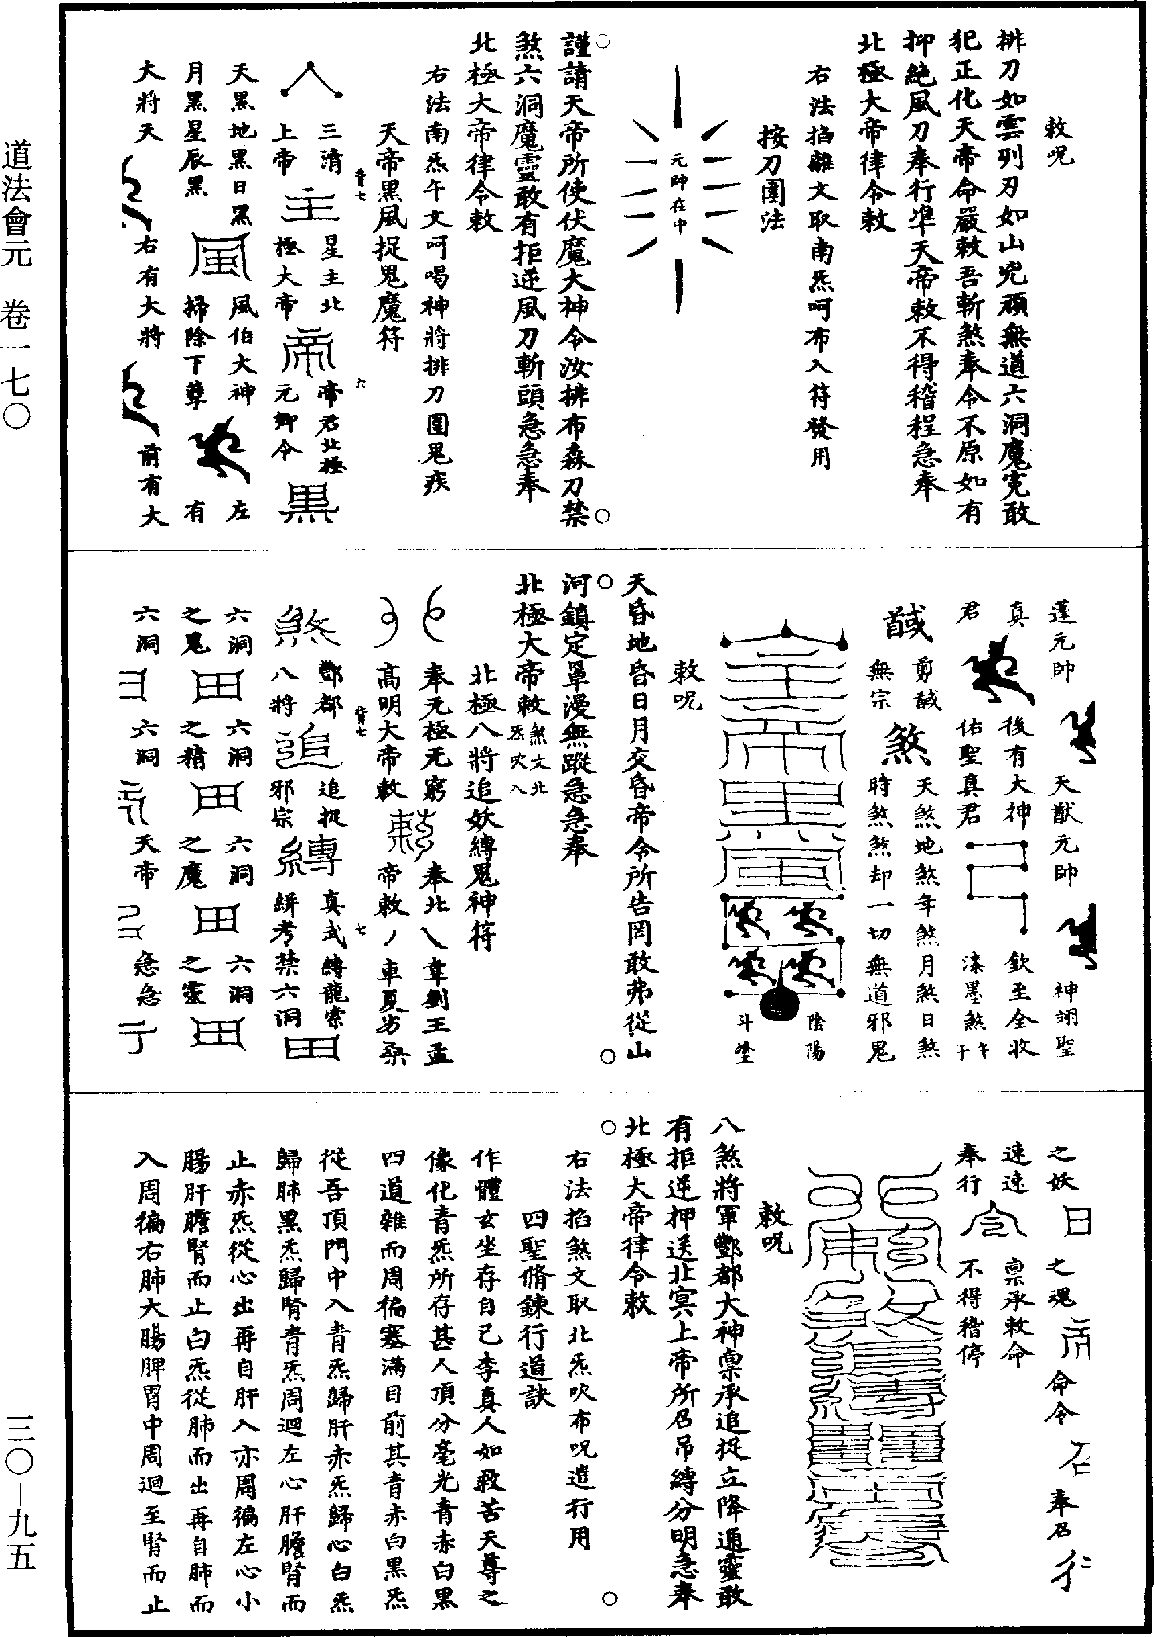 道法會元　卷一七〇
三〇—九五
敕呪
排刀如雲列刃如山兇頑無道六洞魔寃敢
犯正化天帝命嚴敕吾斬煞奉令不原如有
抑絕風刀奉行準天帝敕不得稽程急奉
北極大帝律令敕
右法掐離文取南炁呵布入符發用
按刀圍法
元帥在中
謹請天帝所使伏魔大神令汝排布森刀禁
煞六洞魔靈敢有拒逆風刀斬頭急急奉
北極大帝律令敕
右法南炁午文呵喝神將排刀圍鬼疾
天帝黑風捉鬼魔符
三清
上帝
主
星主北
極大帝
帝
帝君北極
元卿令
黑
天黑地黑日黑
月黑星辰黑
風
風伯大神
掃除下孽
左
有
大將天
右有大將
前有大
蓬元帥
天猷元帥
神翊聖
真
君
後有大神
佑聖真君
欽至全收
漆墨煞
馘
剪馘
無宗
煞
天煞地煞年煞月煞日煞
時煞煞却一切無道邪鬼
陰陽
斗
敕呪
天昏地昏日月交昏帝令所告罔敢弗從山
河鎮定罩漫無蹤急急奉
北極大帝敕煞文北炁吹入
北極八將追妖縛鬼神符
奉元極元窮
高明大帝敕
敕
奉北
帝敕
韋劉王孟
車夏勞桑
煞
酆都
八將
追
追捉
邪宗
縛
真武縛龍索
絣考禁六洞
田
六洞
之鬼
田
六洞
之精
田
六洞
之魔
田
六洞
之靈
田
六洞
六洞
天帝
急急
之妖
日
之魂
帝
命令
召
奉召
行
速速
奉行
令
稟承敕命
不得稽停
敕呪
八煞將軍酆都大神稟承追捉立降通靈敢
有拒逆押送北冥上帝所召吊縛分明急奉
北極大帝律令敕
右法掐煞文取北炁吹布呪遣行用
四聖脩鍊行道訣
作體玄坐存自己李真人如救苦天尊之
像化青炁所存甚人頂分毫光青赤白黑
四道雜而周徧塞滿目前其青赤白黑炁
從吾頂門中入青炁歸肝赤炁歸心白炁
歸肺黑炁歸腎青炁周迴左心肝膽腎而
止赤炁從心出再自肝入亦周徧左心小
腸肝膽腎而止白炁從肺而出再自肺而
入周徧右肺大腸脾胃中周迴至腎而止